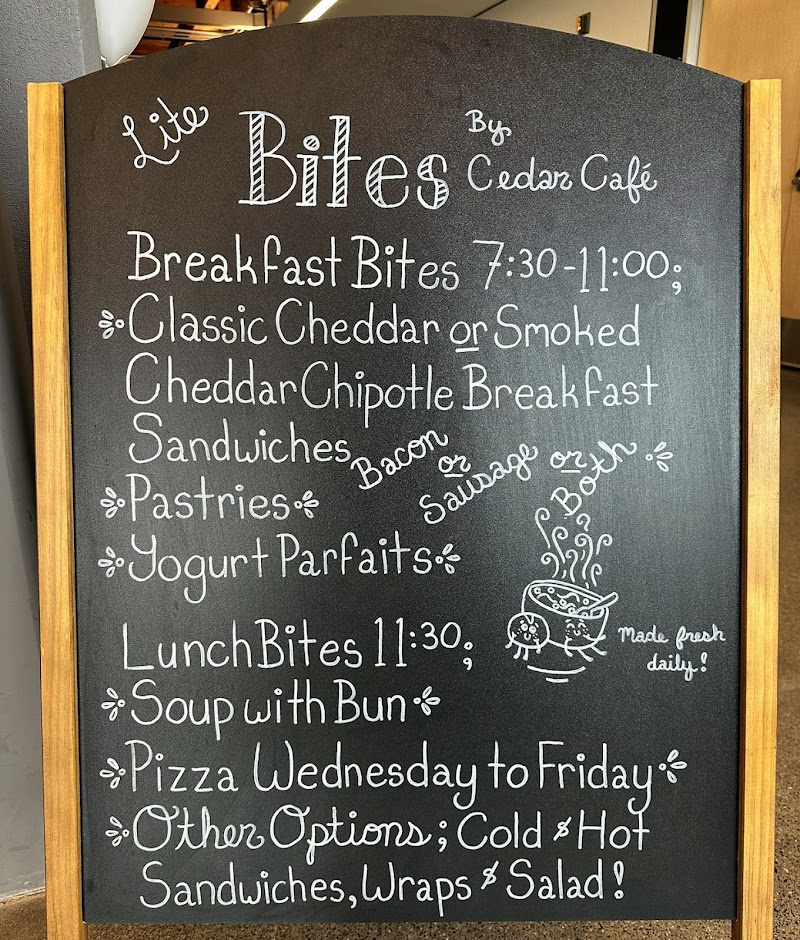 Lite Bites By
Cedar Café
Breakfast Bites 7:30-11:00;
Classic Cheddar or Smoked
Cheddar Chipotle Breakfast
Sandwiches Bacon or Sausage or Both
Pastries
Yogurt Parfaits
Made fresh
daily!
Lunch Bites 11:30;
Soup with Bun
Pizza Wednesday to Friday
Other Options; Cold & Hot
Sandwiches, Wraps & Salad!